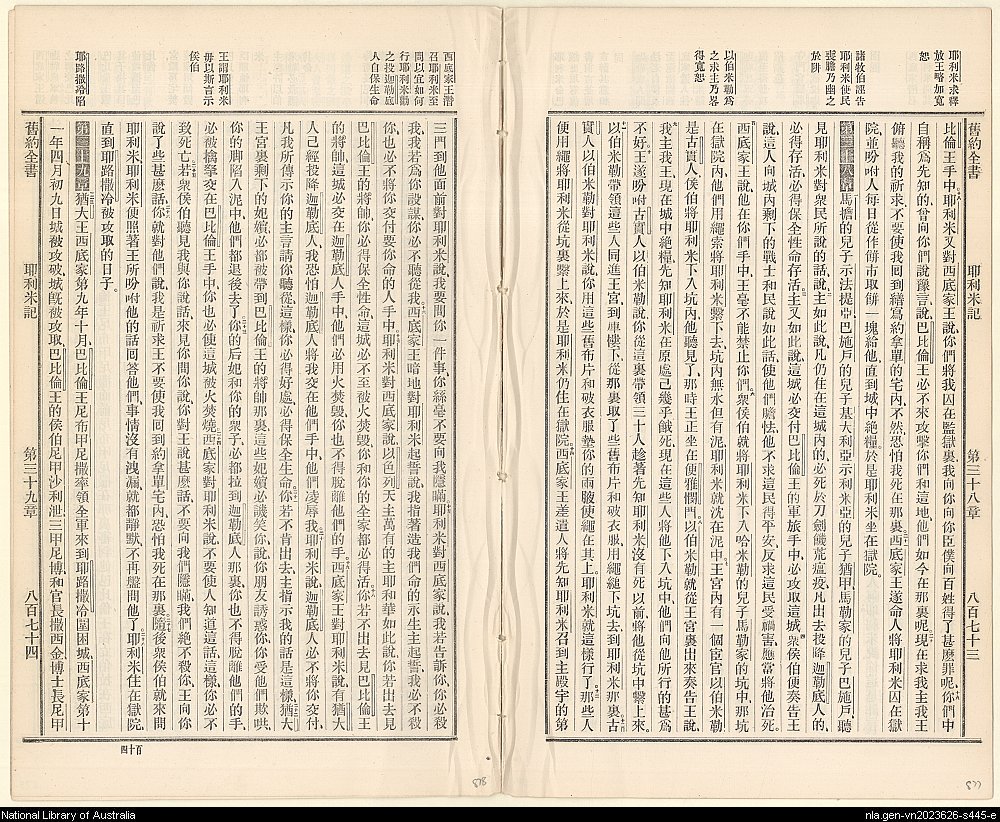 耶利米求釋
放王略加寬
恕
諸牧伯誣告
耶利米使民
喪膽乃幽之
於阱
以伯米勒爲
之求王乃畧
得寬恕
舊約全書 耶利米記 第三十八章 八百七十三
比倫王手中、耶利米又對西底家王說、你們將我囚在監獄裏、我向你、向你臣僕、向百姓得了甚麼罪呢、你們中
自稱爲先知的曾向你們說豫言說、巴比倫王必不來攻擊你們和這地、他們如今在那裏呢、現在求我主我王、
俯聽我的祈求、不要使我囘到繕寫約拿單的宅內、不然恐怕我死在那裏、西底家王遂命人將耶利米囚在獄
院、並吩咐人每日從作餅市取餅一塊給他、直到城中絕糧、於是耶利米坐在獄院。
第三十八章 馬擔的兒子示法提亞、巴施戶的兒子基大利亞、示利米亞的兒子猶甲、馬勒家的兒子巴施戶、聽
見耶利米對衆民所說的話、說、主如此說、凡仍住在這城內的、必死於刀劍饑荒瘟疫、凡出去投降迦勒底人的、
必得存活、必得保全性命存活、主又如此說、這城必交付巴比倫王的軍旅手中、必攻取這城、衆侯伯便奏告王
說、這人向城內剩下的戰士和民說如此話、使他們膽怯、他不求這民得平安、反求這民受禍害、應當將他治死。
西底家王說、他在你們手中、王毫不能禁止你們、衆侯伯就將耶利米下入哈米勒的兒子馬勒家的坑中、那坑
在獄院內、他們用繩索將耶利米繫下去、坑內無水、但有泥、耶利米就沈在泥中、王宮內有一個宦官以伯米勒
是古實人、侯伯將耶利米下入坑內、他聽見了、那時王正坐在便雅憫門、以伯米勒就從王宮裏出來奏告王說、
我主我王、現在城中絕糧、先知耶利米在原處已幾乎餓死、現在這些人將他下入坑中、他們向他所行的甚爲
不好、王遂吩咐古實人以伯米勒說、你從這裏帶領三十人、趁著先知耶利米沒有死以前、將他從坑中繫上來。
以伯米勒帶領這些人同進王宮、到庫樓下、從那裏取了些舊布片和破衣服、用繩縋下坑去、到耶利米那裏、古
實人以伯米勒對耶利米說、你用這些舊布片和破衣服、墊你的兩腋、使繩在其上、耶利米就這樣行了、那些人
便用繩將耶利米從坑裏繫上來、於是耶利米仍住在獄院、西底家王差遣人將先知耶利米召到主殿宇的第
西底家王潛
召耶利米至
問以宜如何
行耶利米勸
之投迦勒底
人自保生命
王謂耶利米
毋以斯言示
侯伯
耶路撒冷陷
三門到他面前、對耶利米說、我要問你一件事、你絲毫不要向我隱瞞、耶利米對西底家說、我若告訴你、你必殺
我、我若爲你設謀、你必不聽從我、西底家王暗地對耶利米起誓說、我指著造我們命的永生主起誓、我必不殺
你、也必不將你交付要你命的人手中、耶利米對西底家說、以色列天主萬有的主耶和華如此說、你若出去見
巴比倫王的將帥、你必得保全性命、這城必不至被火焚毀、你和你的全家都必得活、你若不出去見巴比倫王
的將帥、這城必交在迦勒底人手中、他們必用火焚毀、你也不得脫離他們的手、西底家王對耶利米說、有猶大
人已經投降迦勒底人、我恐怕迦勒底人將我交在他們手中、他們凌辱我、耶利米說、迦勒底人必不將你交付、
凡我所傳示你的主言、請你聽從這樣、你必得好處、必得保全生命、你若不肯出去、主指示我的話是這樣、猶大
王宮裏剩下的妃嬪、必都被帶到巴比倫王的將帥那裏、這些妃嬪必譏笑你說、你朋友誘惑你、你受他們欺哄、
你的脚陷入泥中、他們都退後去了、你的后妃和你的衆子、必都拉到迦勒底人那裏、你也不得脫離他們的手、
必被擒拏交在巴比倫王手中、你也必使這城被火焚燒、西底家對耶利米說、不要使人知道這話、這樣你必不
致死亡、若衆侯伯聽見我與你說話、來見你問你說、你對王說甚麼話、不要向我們隱瞞、我們絕不殺你、王向你
說了些甚麼話、你就對他們說、我是祈求王不要使我囘到約拿單宅內、恐怕我死在那裏、隨後衆侯伯就來問
耶利米、耶利米便照著王所吩咐他的話囘答他們、事情沒有洩漏、就都靜默不再盤問他了、耶利米住在獄院、
直到耶路撒冷被攻取的日子。
第三十九章 猶大王西底家第九年十月、巴比倫王尼布甲尼撒率領全軍來到耶路撒冷圍困城、西底家第十
一年四月初九日、城被攻破、城旣被攻取、巴比倫王的侯伯尼甲沙利泄、三甲尼博、和官長撒西金、博士長尼甲
舊約全書 耶利米記 第三十九章 八百七十四
百十四
878
877
National Library of Australia
nla.gen-vn2023626-s445-e